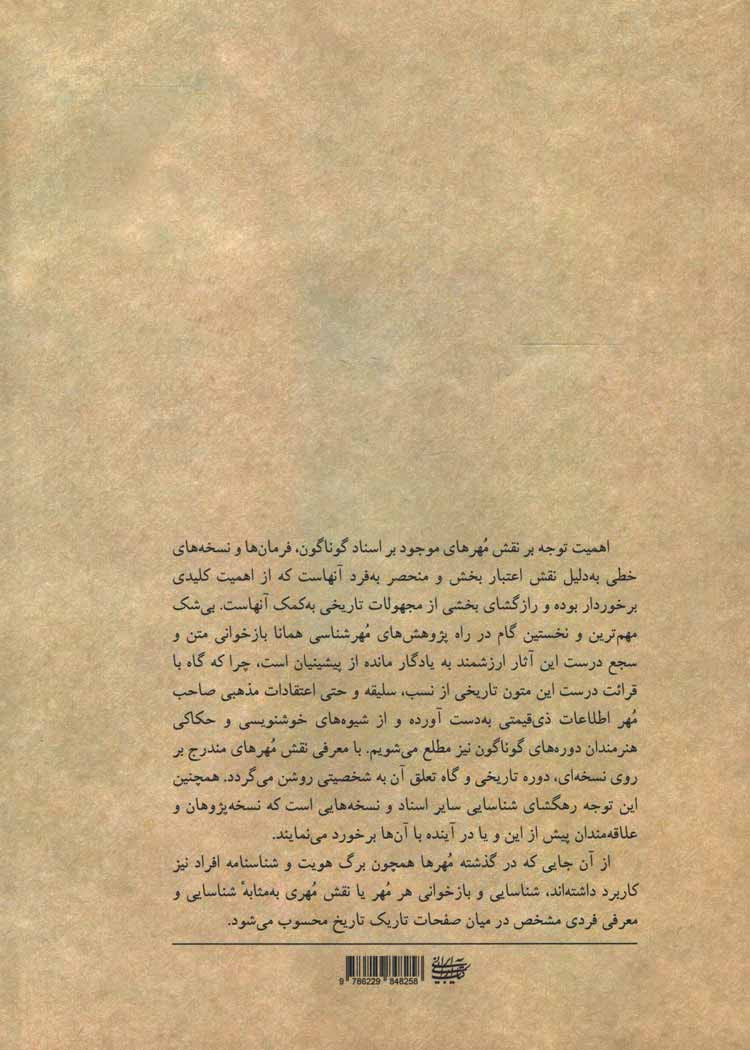 اهمیت توجه بر نقش مُهرهای موجود بر اسناد گوناگون، فرمان‌ها و نسخه‌های
خطی به‌دلیل نقش اعتبار بخش و منحصر به‌فرد آنهاست که از اهمیت کلیدی
برخوردار بوده و رازگشای بخشی از مجهولات تاریخی به‌کمک آنهاست. بی‌شک
مهم‌ترین و نخستین گام در راه پژوهش‌های مُهرشناسی همانا بازخوانی متن و
سجع درست این آثار ارزشمند به یادگار مانده از پیشینیان است، چرا که گاه با
قرائت درست این متون تاریخی از نسب، سلیقه و حتی اعتقادات مذهبی صاحب
مُهر اطلاعات ذی‌قیمتی به‌دست آورده و از شیوه‌های خوشنویسی و حکاکی
هنرمندان دوره‌های گوناگون نیز مطلع می‌شویم. با معرفی نقش مُهرهای مندرج بر
روی نسخه‌ای، دوره تاریخی و گاه تعلق آن به شخصیتی روشن می‌گردد. همچنین
این توجه رهگشای شناسایی سایر اسناد و نسخه‌هایی است که نسخه‌پژوهان و
علاقه‌مندان پیش از این و یا در آینده با آن‌ها برخورد می‌نمایند.
از آن جایی که در گذشته مُهرها همچون برگ هویت و شناسنامه افراد نیز
کاربرد داشته‌اند، شناسایی و بازخوانی هر مُهر یا نقش مُهری به‌مثابهٔ شناسایی و
معرفی فردی مشخص در میان صفحات تاریک تاریخ محسوب می‌شود.
9 786229 848258